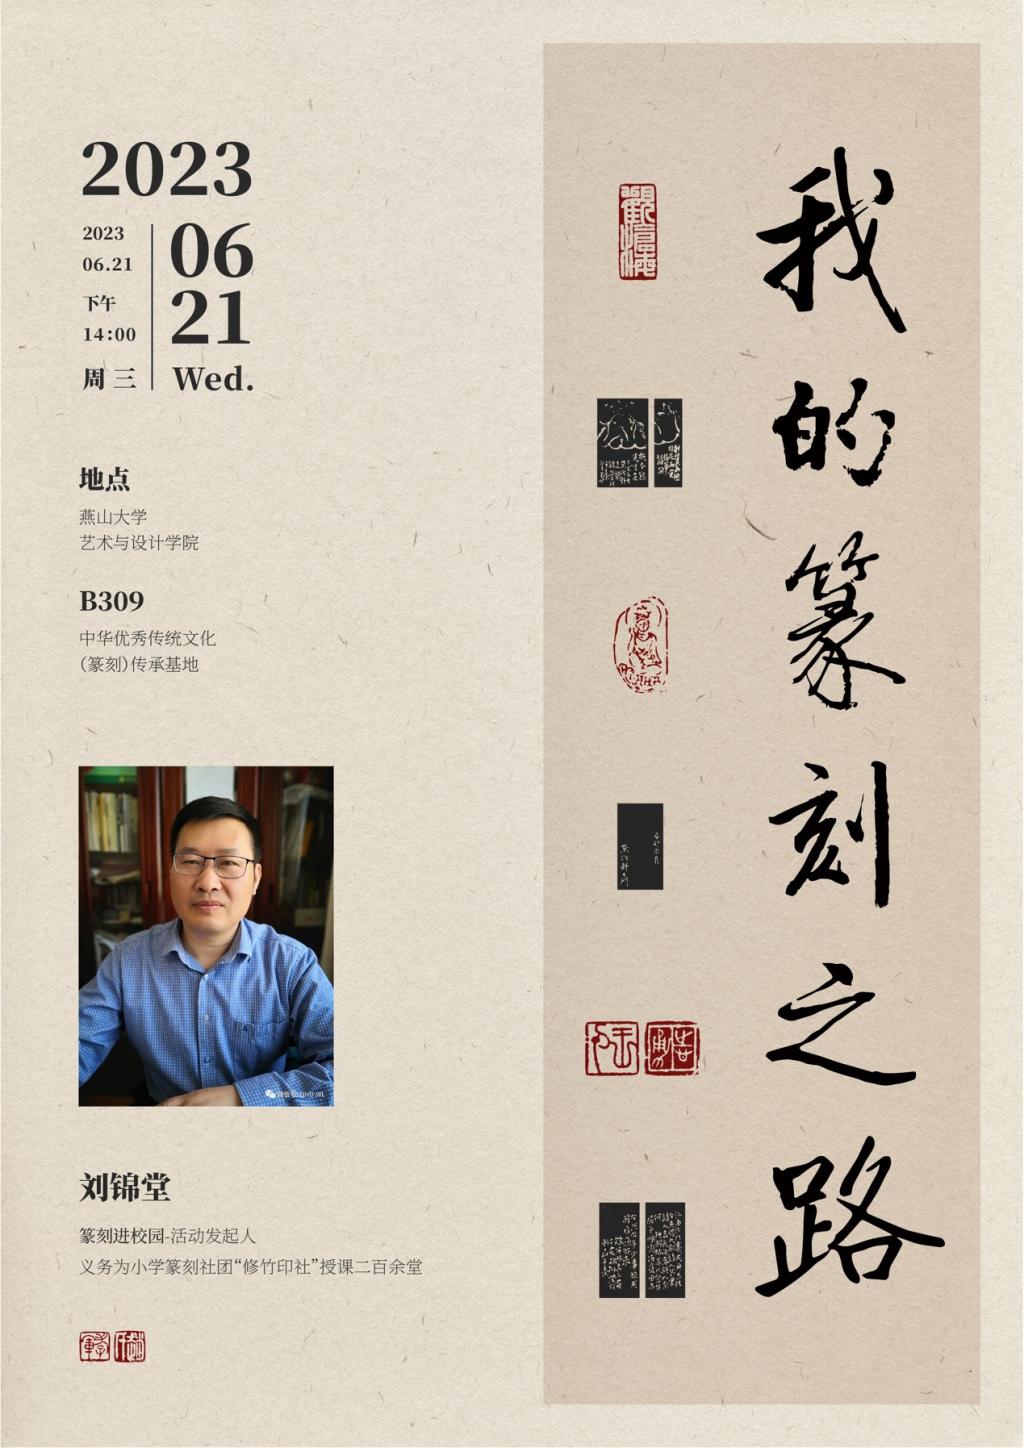 2023
2023
06.21
下午
14:00
周三
06
21
Wed.
地点
燕山大学
艺术与设计学院
B309
中华优秀传统文化
（篆刻）传承基地
刘锦堂
篆刻进校园-活动发起人
义务为小学篆刻社团“修竹印社”授课二百余堂
我的篆刻之路
觀滄海